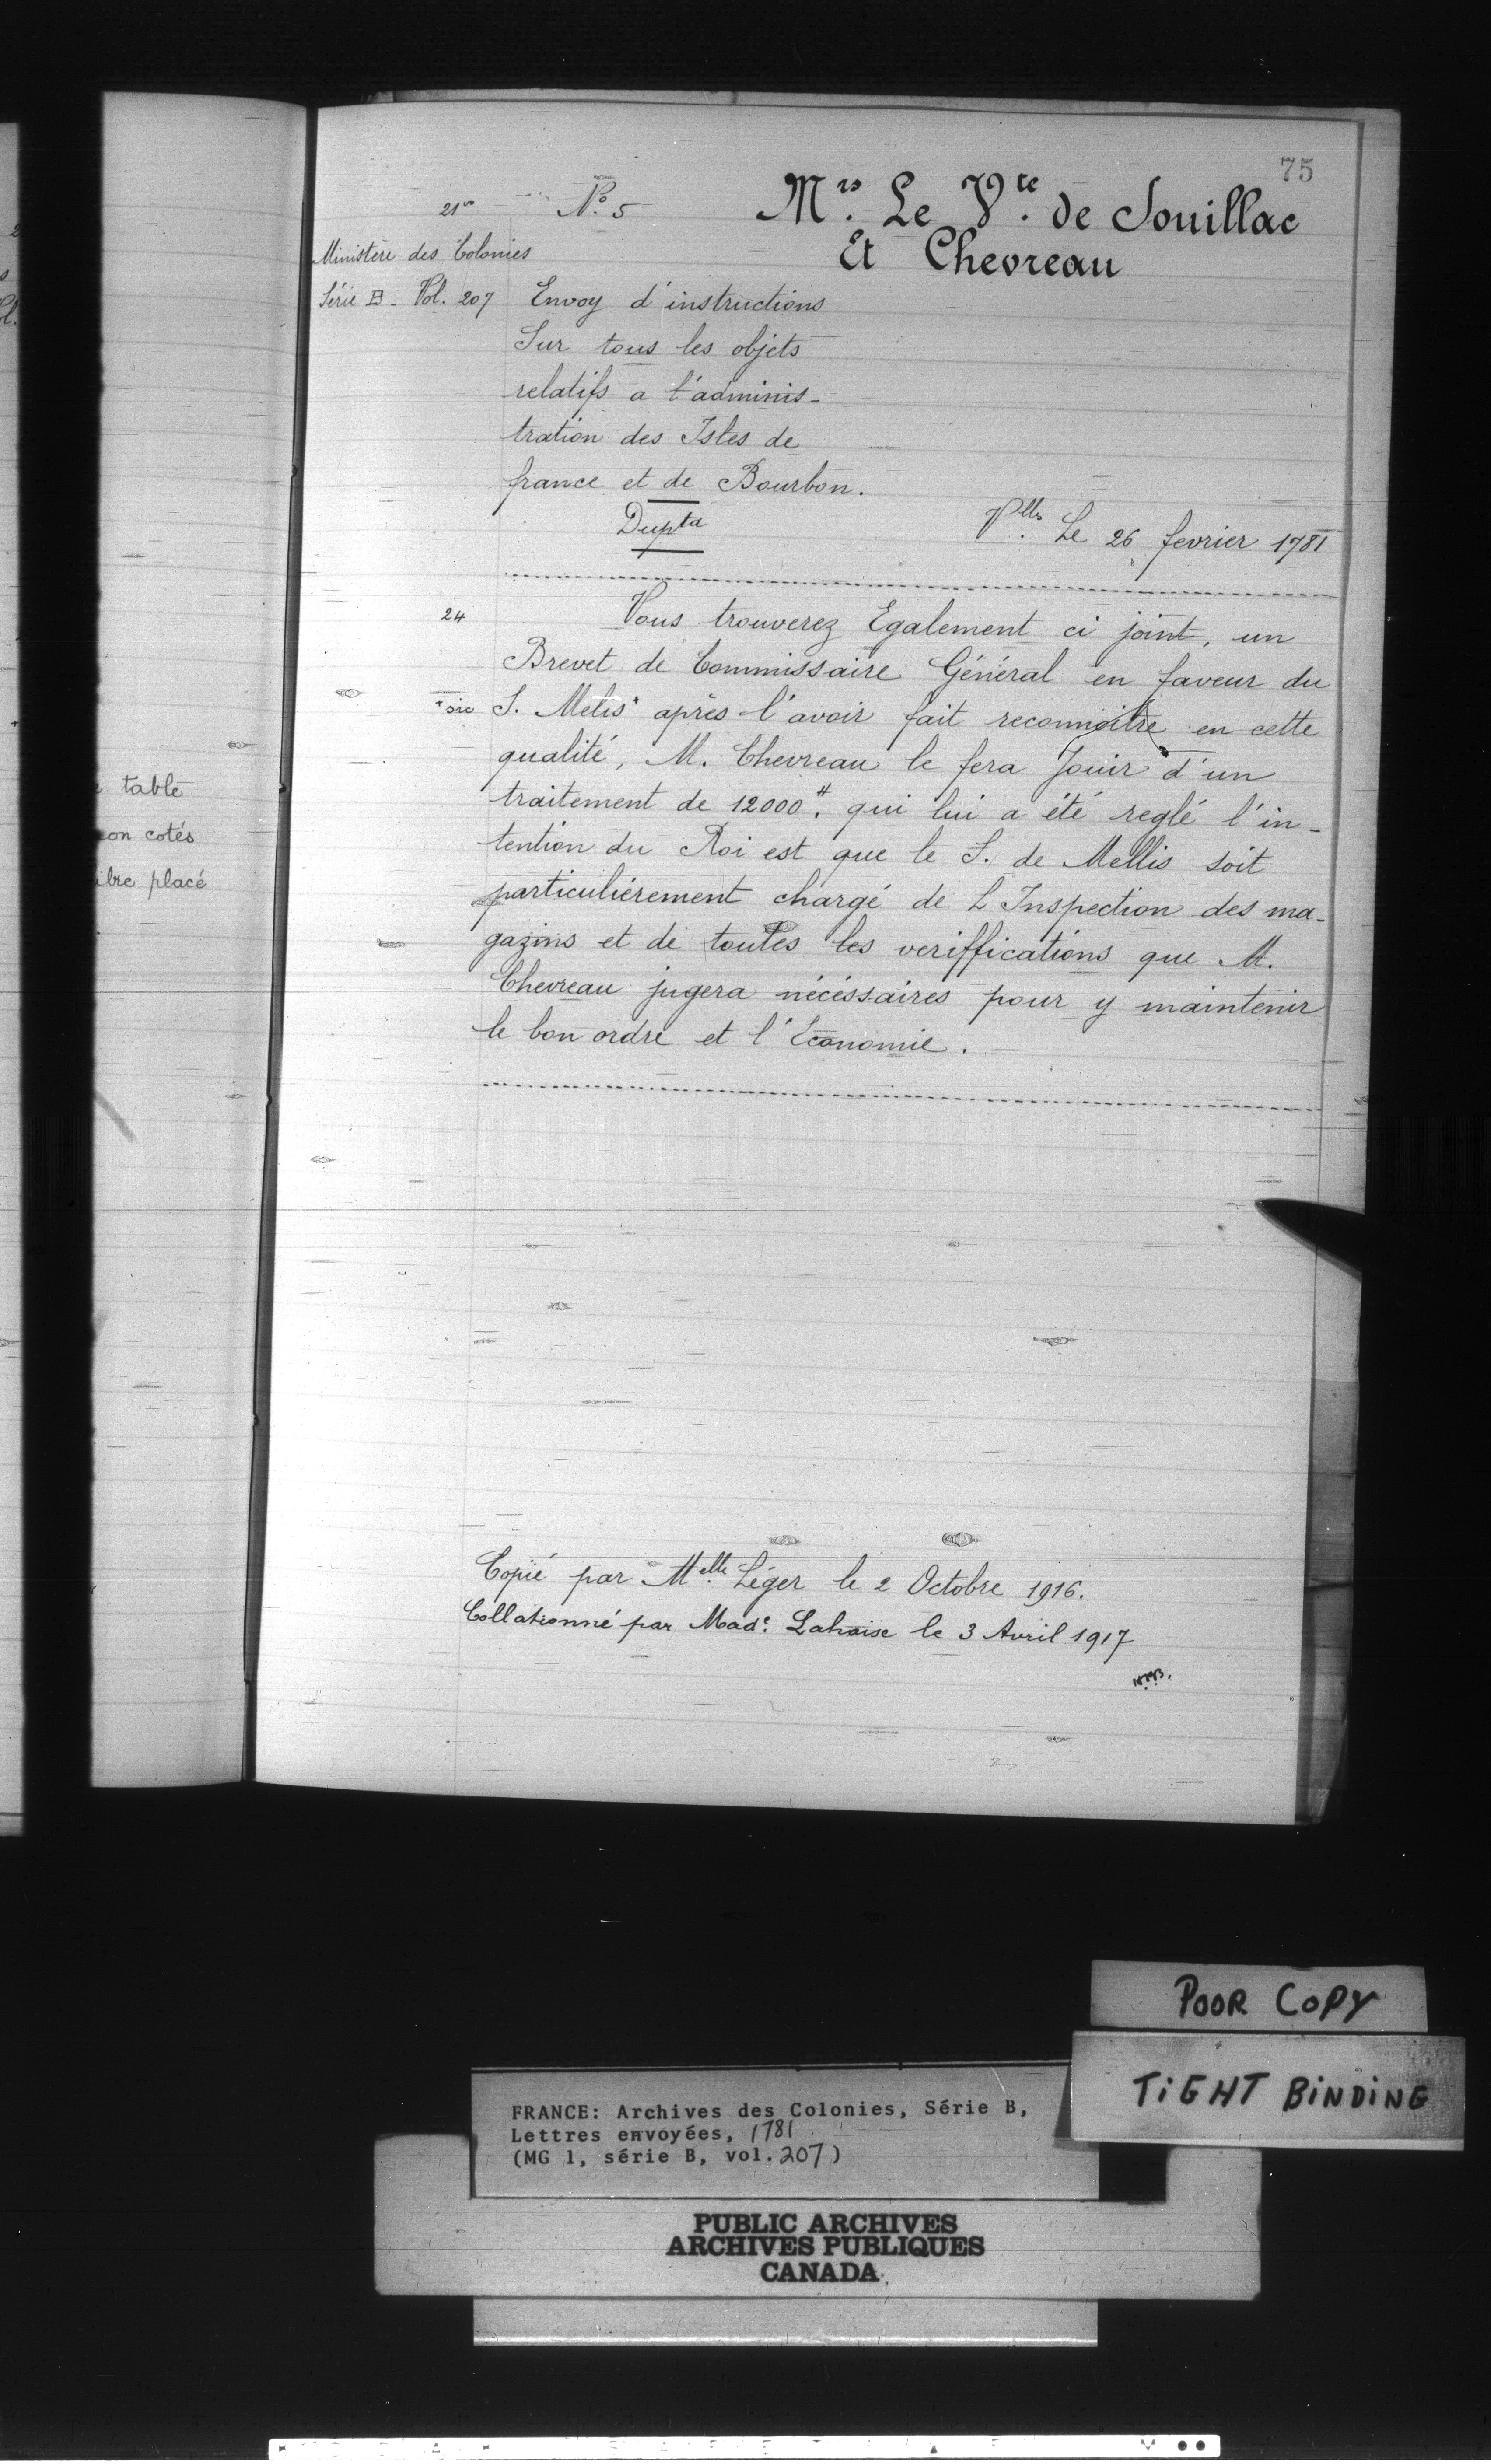 75
21vo
No. 5
Mrs. Le Vte. de Souillac
Et Chevreau
Ministère des Colonies
Série B - Vol. 207
Envoy d'instructions
Sur tous les objets
relatifs a l'adminis-
tration des Isles de
france et de Bourbon.
Dupta
Vlles. Le 26 fevrier 1781
24
Vous trouverez Egalement ci joint, un
Brevet de Commissaire Général en faveur du
+sic
S. Melis+ après l'avoir fait reconnoitre en cette
qualité, M. Chevreau le fera Jouir d'un
traitement de 12000.# qui lui a été reglé l'in-
tention du Roi est que le S. de Mellis soit
particuliérement chargé de L Inspection des ma-
gazins et de toutes les veriffications que M.
Chevreau jugera nécéssaires pour y maintenir
le bon ordre et l'Economie.
table
on cotés
ibre placé
Copié par Melle. Léger le 2 Octobre 1916.
Collationné par Made. Lahaise le 3 Avril 1917
POOR COPY
TIGHT BINDING
FRANCE: Archives des Colonies, Série B,
Lettres envoyées, 1781
(MG 1, série B, vol. 207)
PUBLIC ARCHIVES
ARCHIVES PUBLIQUES
CANADA